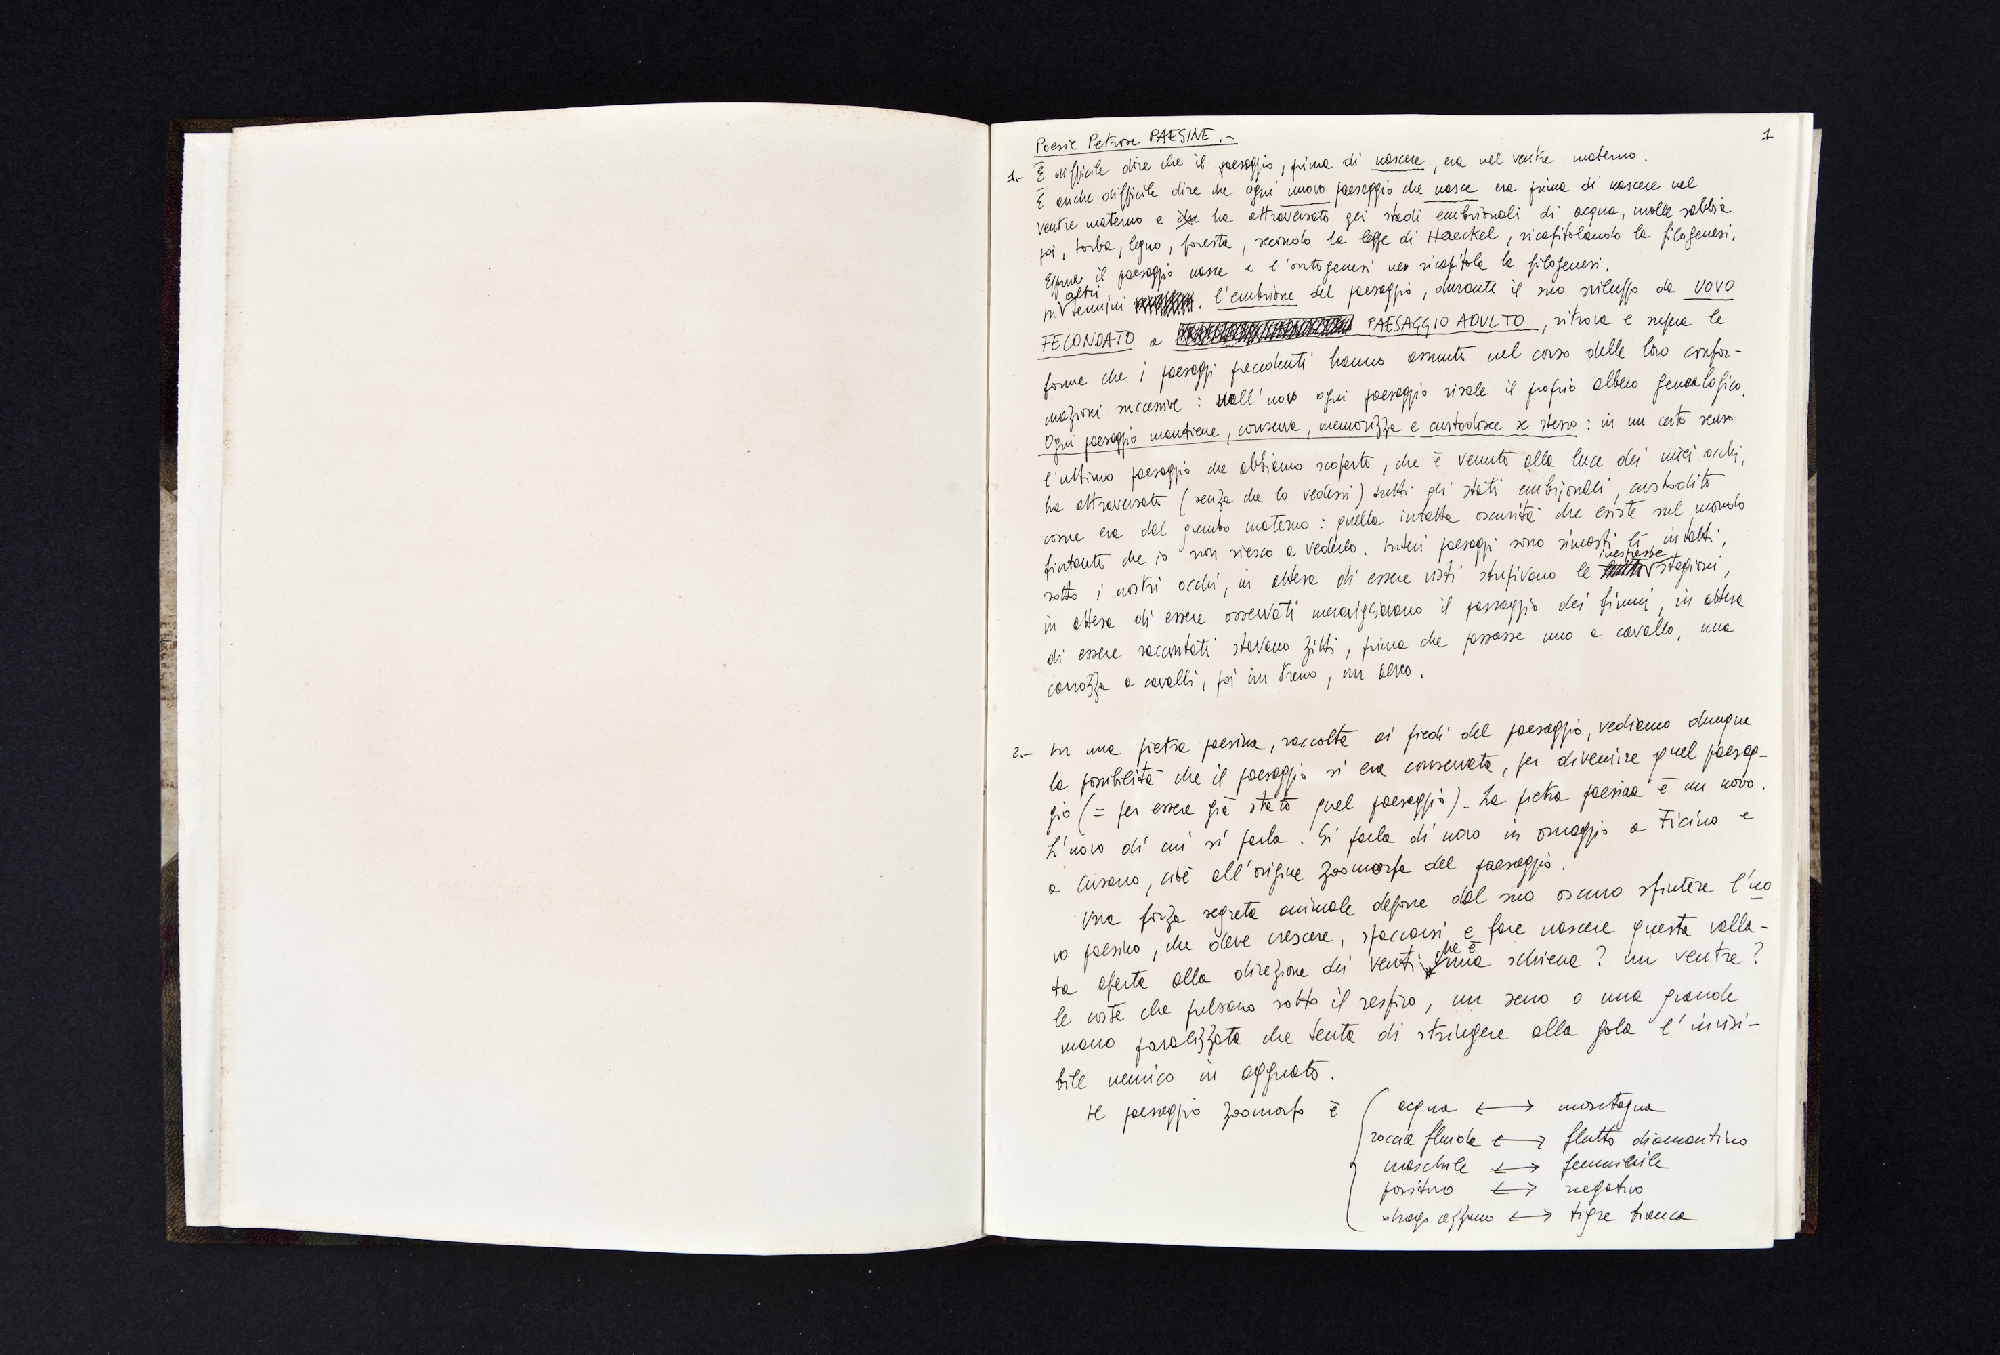 Poesie Petrose PAESINE.-
1
1.- È difficile dire che il paesaggio, prima di nascere, era nel ventre materno.
È anche difficile dire che ogni nuovo paesaggio che nasce era prima di nascere nel
ventre materno e ha attraversato gli stadi embrionali di acqua, molle sabbia
poi, torba, legno, foresta, secondo la legge di Haeckel, ricapitolando la filogenesi.
Eppure il paesaggio nasce e l'ontogenesi ne ricapitola la filogenesi.
in altri termini. l'embrione del paesaggio, durante il suo sviluppo da UOVO
FECONDATO a PAESAGGIO ADULTO, ritrova e supera le
forme che i paesaggi precedenti hanno assunte nel corso delle loro confor-
mazioni successive: nell'uovo ogni paesaggio risale il proprio albero genealogico.
Ogni paesaggio mantiene, conserva, memorizza e custodisce se stesso: in un certo senso
l'ultimo paesaggio che abbiamo scoperto, che è venuto alla luce dei miei occhi,
ha attraversato (senza che lo vedessi) tutti gli stati embrionali, custodito
come era dal grembo materno: quella intatta oscurità che esiste sul mondo
fintanto che io non riesco a vederlo. Interi paesaggi sono rimasti lì intatti,
sotto i nostri occhi, in attesa di essere visti stupivano le inespresse stagioni,
in attesa di essere osservati meravigliavano il passaggio dei fiumi, in attesa
di essere raccontati stavano zitti, prima che passasse uno a cavallo, una
carrozza a cavalli, poi un treno, un aereo.
2.- In una pietra paesina, raccolta ai piedi del paesaggio, vediamo dunque
la possibilità che il paesaggio si era conservata, per divenire quel paesag-
gio (= per essere già stato quel paesaggio). La pietra paesina è un uovo.
L'uovo di cui si parla. Si parla di uovo in omaggio a Ficino e
a Cusano, cioè all'origine zoomorfa del paesaggio.
Una forza segreta animale depone dal suo oscuro sfintere l'uo
vo paesino, che deve crescere, spaccarsi e fare nascere questa valla-
ta aperta alla direzione dei venti che è una schiena? un ventre?
le coste che pulsano sotto il respiro, un seno o una grande
mano paralizzata che tenta di stringere alla gola l'invisi-
bile nemico in agguato.
Il paesaggio zoomorfo è { acqua ⟷ montagna
roccia fluida ⟷ flutto diamantino
maschile ⟷ femminile
positivo ⟷ negativo
drago azzurro ⟷ tigre bianca